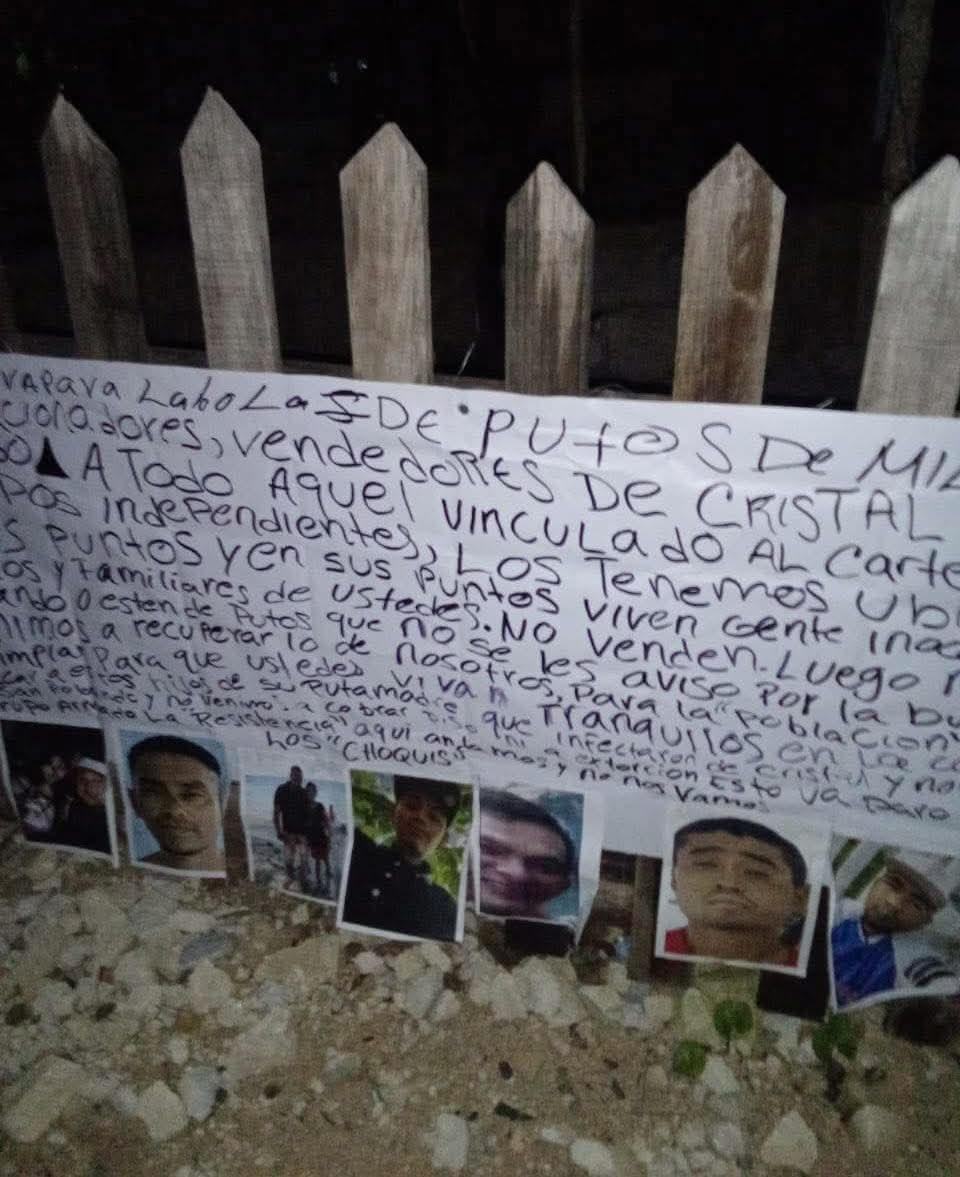 VA PARA LA bOLA DE PUtOS De MIE
culadores, vendedores DE CRISTAL
A Todo Aquel VINCULADO AL Carte
POS INdePendientes, LOS Tenemos Ubi
S PUNTOS Y EN SUS PUNTOS VIVEN Gente INOC
OS y Familiares de ustedes. NO Venden. Luego N
ando O esten de Putos que no se les aviso Por la bu
nimos a recuperar lo de nosotros, Para la "Poblacion"
impia Para que ustedes vivan TranquiLos en La c
car a estos Hijos de su Putamadre que infectaron de cristal y no
y no venimos a cobrar Piso ni a extorcion Esto va para
rupo Armado La "Resistencia" aqui andamos y no nos Vamos
LOS "CHOQUIS"